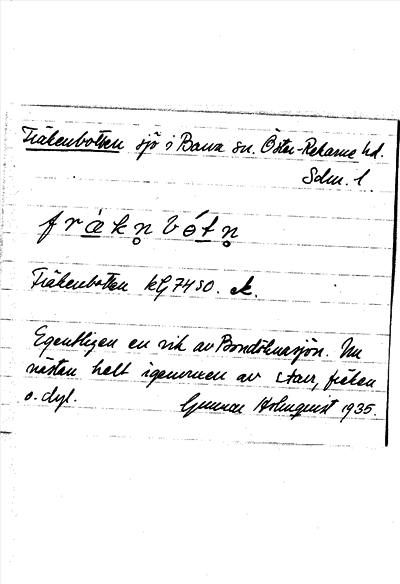 Fräkenbotten sjö i Barva sn. Öster-Rekarne hd.
Sdm. l.
fràkn bótn
Fräkenbotten kG 7450. ek.
Egentligen en vik av Bondöknasjön. Nu
nästan helt igenvuxen av starr, fräken
o. dyl. Gunnar Holmquist 1935.